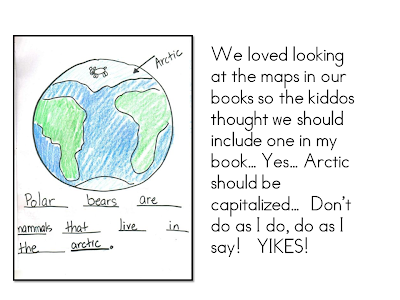 Arctic
Polar bears are
mammals that live in
the arctic.
We loved looking
at the maps in our
books so the kiddos
thought we should
include one in my
book... Yes... Arctic
should be
capitalized... Don't
do as I do, do as I
say! YIKES!